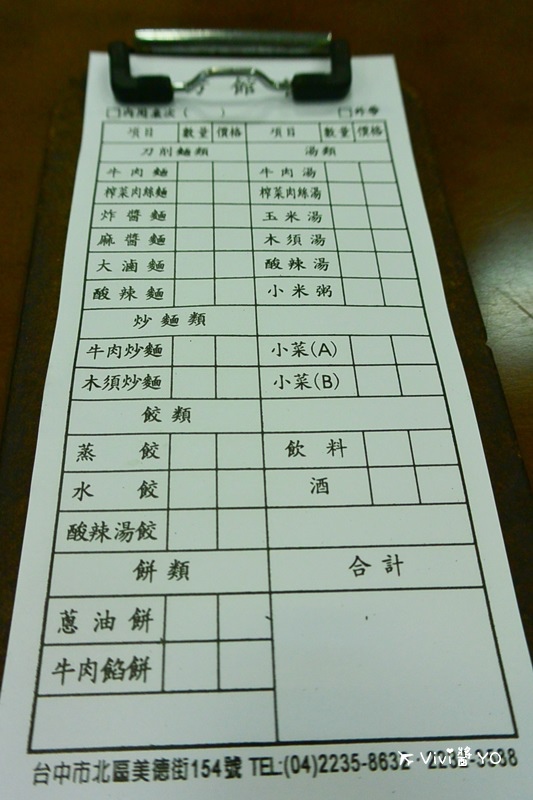 館
□內用桌次（　　） □外帶
項目 數量 價格 項目 數量 價格
刀削麵類 湯類
牛肉麵 牛肉湯
榨菜肉絲麵 榨菜肉絲湯
炸醬麵 玉米湯
麻醬麵 木須湯
大滷麵 酸辣湯
酸辣麵 小米粥
炒麵類
牛肉炒麵 小菜(A)
木須炒麵 小菜(B)
餃類
蒸餃 飲料
水餃 酒
酸辣湯餃
餅類 合計
蔥油餅
牛肉餡餅
台中市北區美德街154號 TEL:(04)2235-8632
Vivi醬 YO